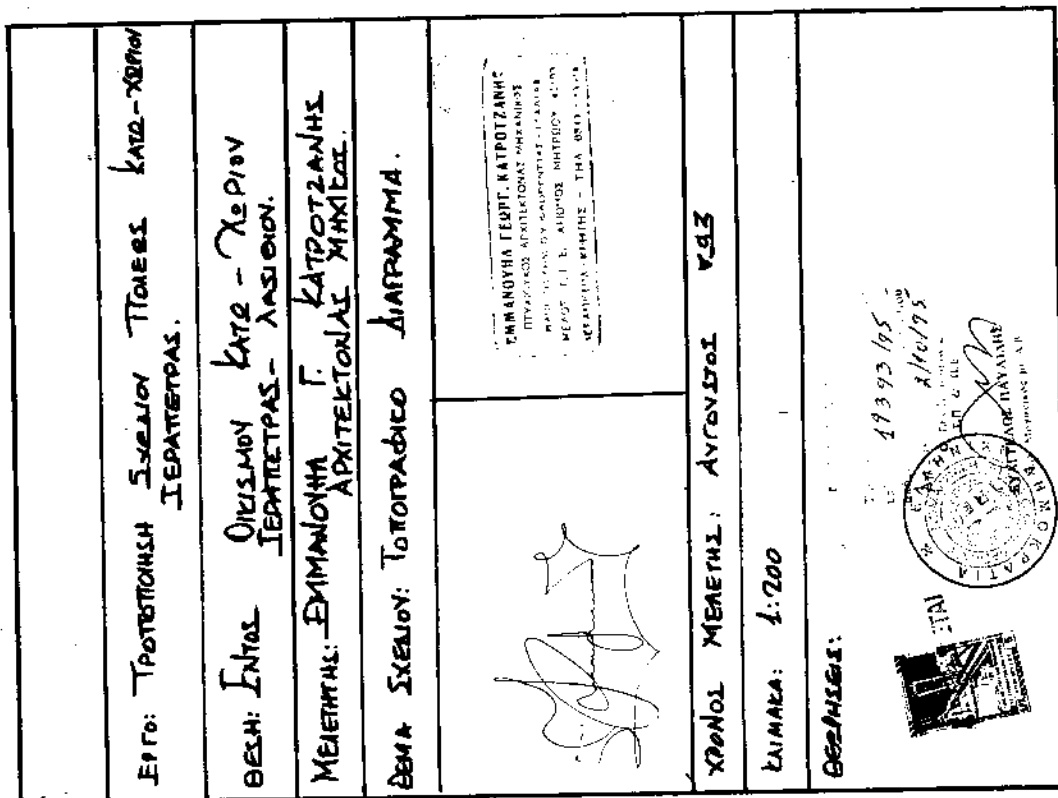 ΕΡΓΟ: ΤΡΟΠΟΠΟΙΗΣΗ ΣΧΕΔΙΟΥ ΠΟΛΕΩΣ ΚΑΤΩ-ΧΩΡΙΟΥ
ΙΕΡΑΠΕΤΡΑΣ.
ΘΕΣΗ: ΕΝΤΟΣ ΟΙΚΙΣΜΟΥ ΚΑΤΩ-ΧΩΡΙΟΥ
ΙΕΡΑΠΕΤΡΑΣ - ΛΑΣΙΘΙΟΥ.
ΜΕΛΕΤΗΤΗΣ: ΕΜΜΑΝΟΥΗΛ Γ. ΚΑΤΡΟΤΖΑΝΗΣ
ΑΡΧΙΤΕΚΤΟΝΑΣ ΜΗΧ/ΚΟΣ.
ΘΕΜΑ ΣΧΕΔΙΟΥ: ΤΟΠΟΓΡΑΦΙΚΟ ΔΙΑΓΡΑΜΜΑ.
ΕΜΜΑΝΟΥΗΛ ΓΕΩΡΓ. ΚΑΤΡΟΤΖΑΝΗΣ
ΠΤΥΧΙΟΥΧΟΣ ΑΡΧΙΤΕΚΤΟΝΑΣ ΜΗΧΑΝΙΚΟΣ
ΜΕΛΟΣ Τ.Ε.Ε. ΑΡΙΘΜΟΣ ΜΗΤΡΩΟΥ
ΙΕΡΑΠΕΤΡΑ ΚΡΗΤΗΣ - ΤΗΛ.
ΧΡΟΝΟΣ ΜΕΛΕΤΗΣ: ΑΥΓΟΥΣΤΟΣ 93
ΚΛΙΜΑΚΑ: 1:200
ΘΕΩΡΗΣΕΙΣ:
19393/95
2/10/95
ΕΛΛΗΝΙΚΗ ΔΗΜΟΚΡΑΤΙΑ
ΠΑΥΛΙΔΗΣ